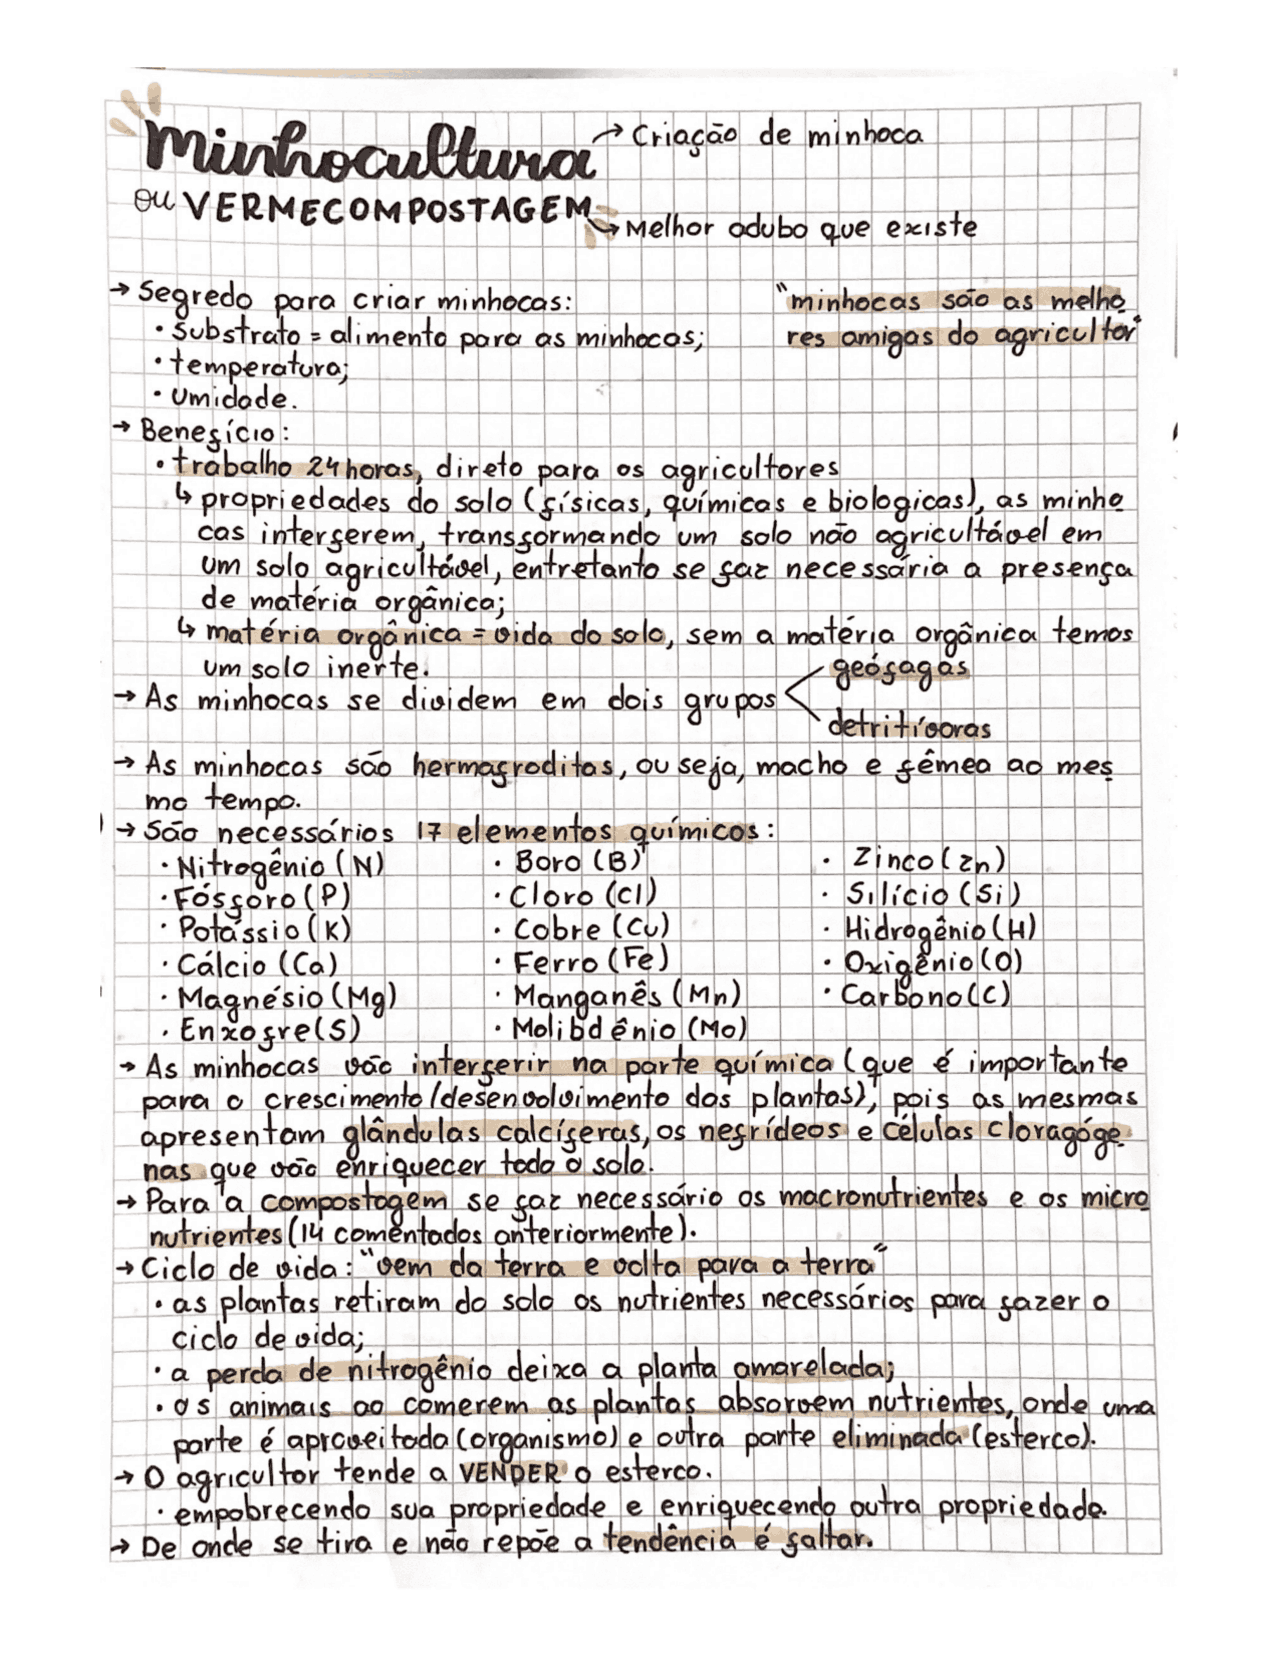 Minhocultura → Criação de minhoca
ou VERMECOMPOSTAGEM
↳ Melhor adubo que existe
→ Segredo para criar minhocas:
"minhocas são as melho
• Substrato = alimento para as minhocas;
res amigas do agricultor"
• temperatura;
• Umidade.
→ Benefício:
• trabalho 24 horas, direto para os agricultores
↳ propriedades do solo (físicas, químicas e biologicas), as minho
cas interferem, transformando um solo não agricultável em
um solo agricultável, entretanto se faz necessária a presença
de matéria orgânica;
↳ matéria orgânica = vida do solo, sem a matéria orgânica temos
um solo inerte.
→ As minhocas se dividem em dois grupos
geófagas
detritívoras
→ As minhocas são hermafroditas, ou seja, macho e fêmea ao mes
mo tempo.
→ São necessários 17 elementos químicos:
• Nitrogênio (N) • Boro (B) • Zinco (Zn)
• Fósforo (P) • Cloro (Cl) • Silício (Si)
• Potássio (K) • Cobre (Cu) • Hidrogênio (H)
• Cálcio (Ca) • Ferro (Fe) • Oxigênio (O)
• Magnésio (Mg) • Manganês (Mn) • Carbono (C)
• Enxofre (S) • Molibdênio (Mo)
→ As minhocas vão interferir na parte química (que é importante
para o crescimento/desenvolvimento das plantas), pois as mesmas
apresentam glândulas calcíferas, os nefrídeos e células cloragóge
nas que vão enriquecer todo o solo.
→ Para a compostagem se faz necessário os macronutrientes e os micro
nutrientes (14 comentados anteriormente).
→ Ciclo de vida: "vem da terra e volta para a terra"
• as plantas retiram do solo os nutrientes necessários para fazer o
ciclo de vida;
• a perda de nitrogênio deixa a planta amarelada;
• os animais ao comerem as plantas absorvem nutrientes, onde uma
parte é aproveitada (organismo) e outra parte eliminada (esterco).
→ O agricultor tende a VENDER o esterco.
• empobrecendo sua propriedade e enriquecendo outra propriedade.
→ De onde se tira e não repõe a tendência é faltar.